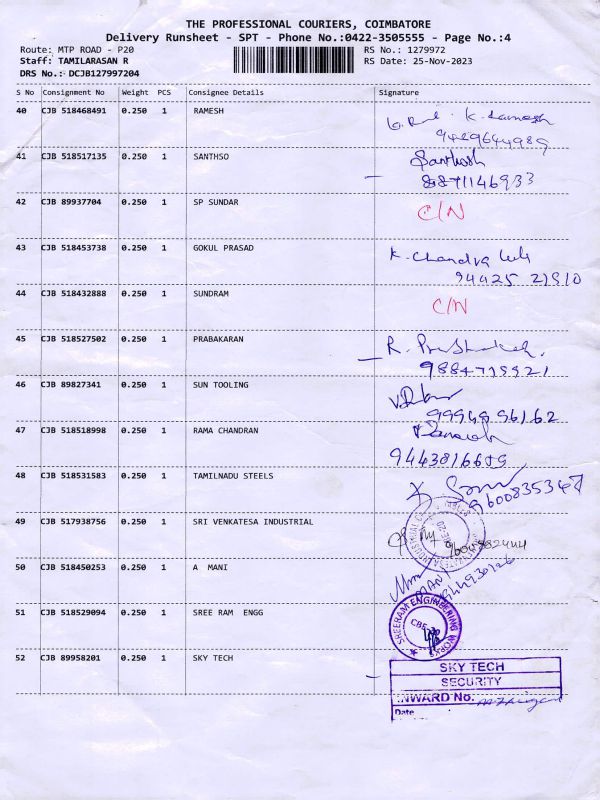 THE PROFESSIONAL COURIERS, COIMBATORE
Delivery Runsheet - SPT - Phone No.:0422-3505555 - Page No.:4
Route: MTP ROAD - P20
RS No.: 1279972
Staff: TAMILARASAN R
RS Date: 25-Nov-2023
DRS No.: DCJB127997204
S No Consignment No Weight PCS Consignee Details Signature
40 CJB 518468491 0.250 1 RAMESH
K. Ramesh
9429644989
41 CJB 518517135 0.250 1 SANTHSO
Santhosh
8871146933
42 CJB 89937704 0.250 1 SP SUNDAR C/N
43 CJB 518453738 0.250 1 GOKUL PRASAD
K. Chandra
94425 21910
44 CJB 518432888 0.250 1 SUNDRAM C/N
45 CJB 518527502 0.250 1 PRABAKARAN
R. 
46 CJB 89827341 0.250 1 SUN TOOLING
9994896162
47 CJB 518518998 0.250 1 RAMA CHANDRAN
48 CJB 518531583 0.250 1 TAMILNADU STEELS
9600835347
49 CJB 517938756 0.250 1 SRI VENKATESA INDUSTRIAL
50 CJB 518450253 0.250 1 A MANI
MANI
51 CJB 518529094 0.250 1 SREE RAM ENGG
SREERAM ENGINEERING WORKS
CBE
52 CJB 89958201 0.250 1 SKY TECH
SKY TECH
SECURITY
INWARD No.
Date